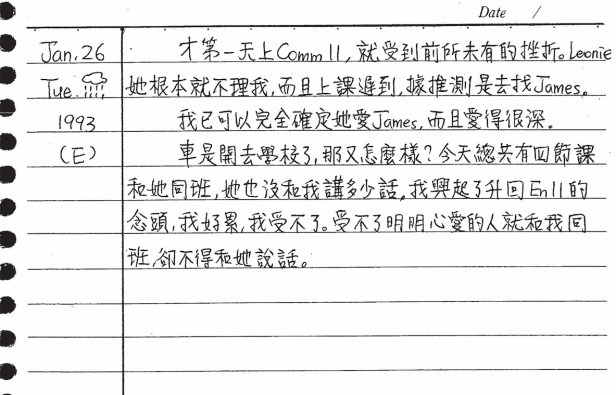 Date /
Jan. 26 才第一天上Comm 11, 就受到前所未有的挫折。Leonie
Tue. 她根本就不理我,而且上課遲到,據推測是去找James。
1993 我已可以完全確定她愛James, 而且愛得很深。
(E) 車是開去學校了,那又怎麼樣?今天總共有四節課
和她同班,她也沒和我講多少話。我興起了升回En11的
念頭,我好累,我受不了。受不了明明心愛的人就和我同
班,卻不得和她說話。